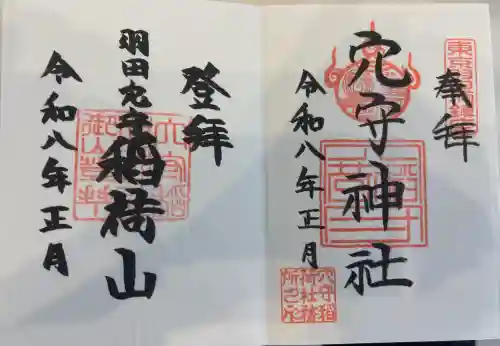 奉拝
穴守神社
令和八年正月
登拝
羽田穴守稲荷山
令和八年正月